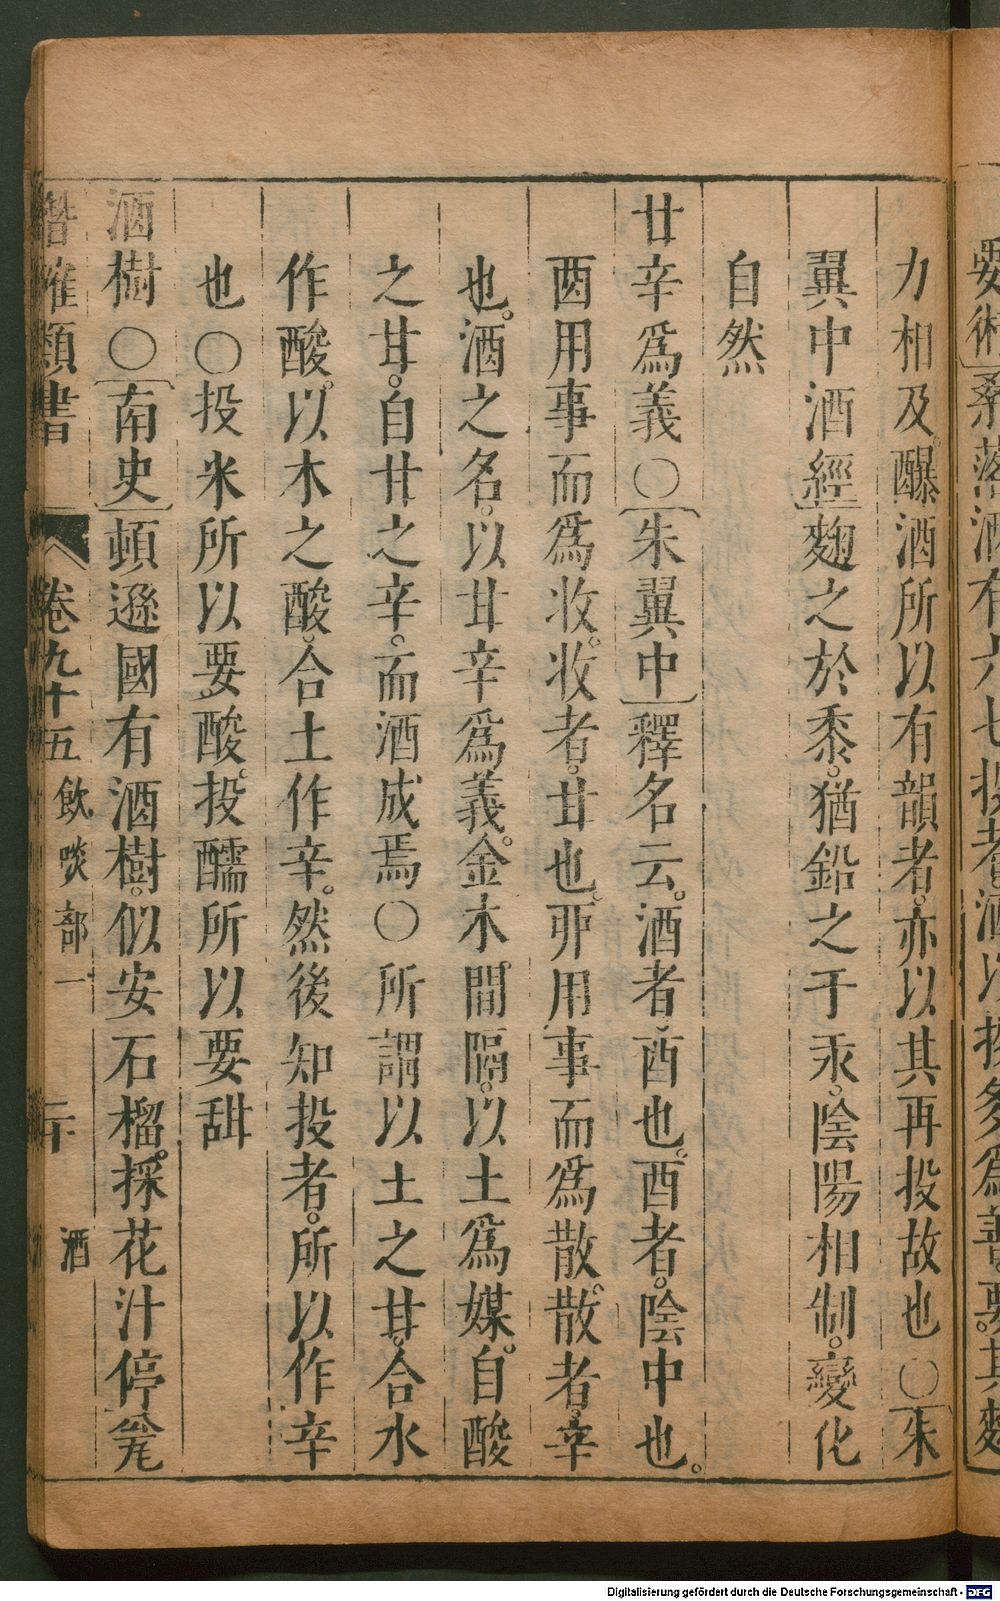 要術桑落酒有六七投者酒以投多爲善要其麴
力相及醸酒所以有韻者亦以其再投故也〇朱
翼中酒經麴之於黍猶鉛之于汞陰陽相制變化
自然
甘辛爲義〇朱翼中釋名云酒者酉也酉者陰中也
酉用事而爲收收者甘也夘用事而爲散散者辛
也酒之名以甘辛爲義金木間隔以土爲媒自酸
之甘自甘之辛而酒成焉〇所謂以土之甘合水
作酸以木之酸合土作辛然後知投者所以作辛
也〇投米所以要酸投醹所以要甜
酒樹〇南史頓遜國有酒樹似安石榴採花汁停瓮
潛確類書 卷九十五 飲啖部一 二十 酒
Digitalisierung gefördert durch die Deutsche Forschungsgemeinschaft - DFG